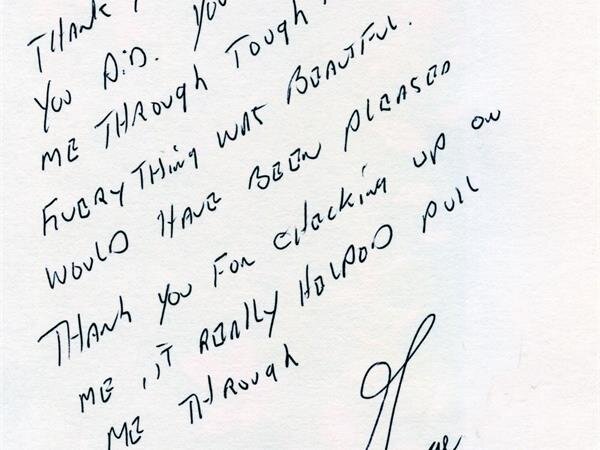 THANK
YOU DID. YOU
ME THROUGH TOUGH
EVERYTHING WAS BEAUTIFUL.
WOULD HAVE BEEN PLEASED
THANK YOU FOR CHECKING UP ON
ME, IT REALLY HELPED PULL
ME THROUGH